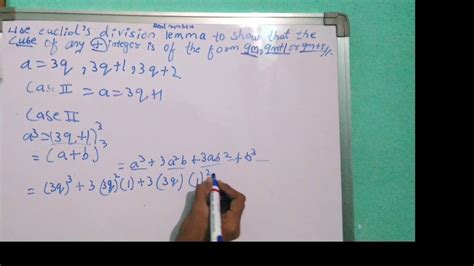 Real numbers
Use euclid's division lemma to show that the
Cube of any + integer is of the form 9m, 9m+1 or 9m+8
a = 3q , 3q+1 , 3q+2
Case II = a = 3q+1
Case II
a³ = (3q+1)³
= (a+b)³
= a³ + 3a²b + 3ab² + b³
= (3q)³ + 3(3q)²(1) + 3(3q)(1)²